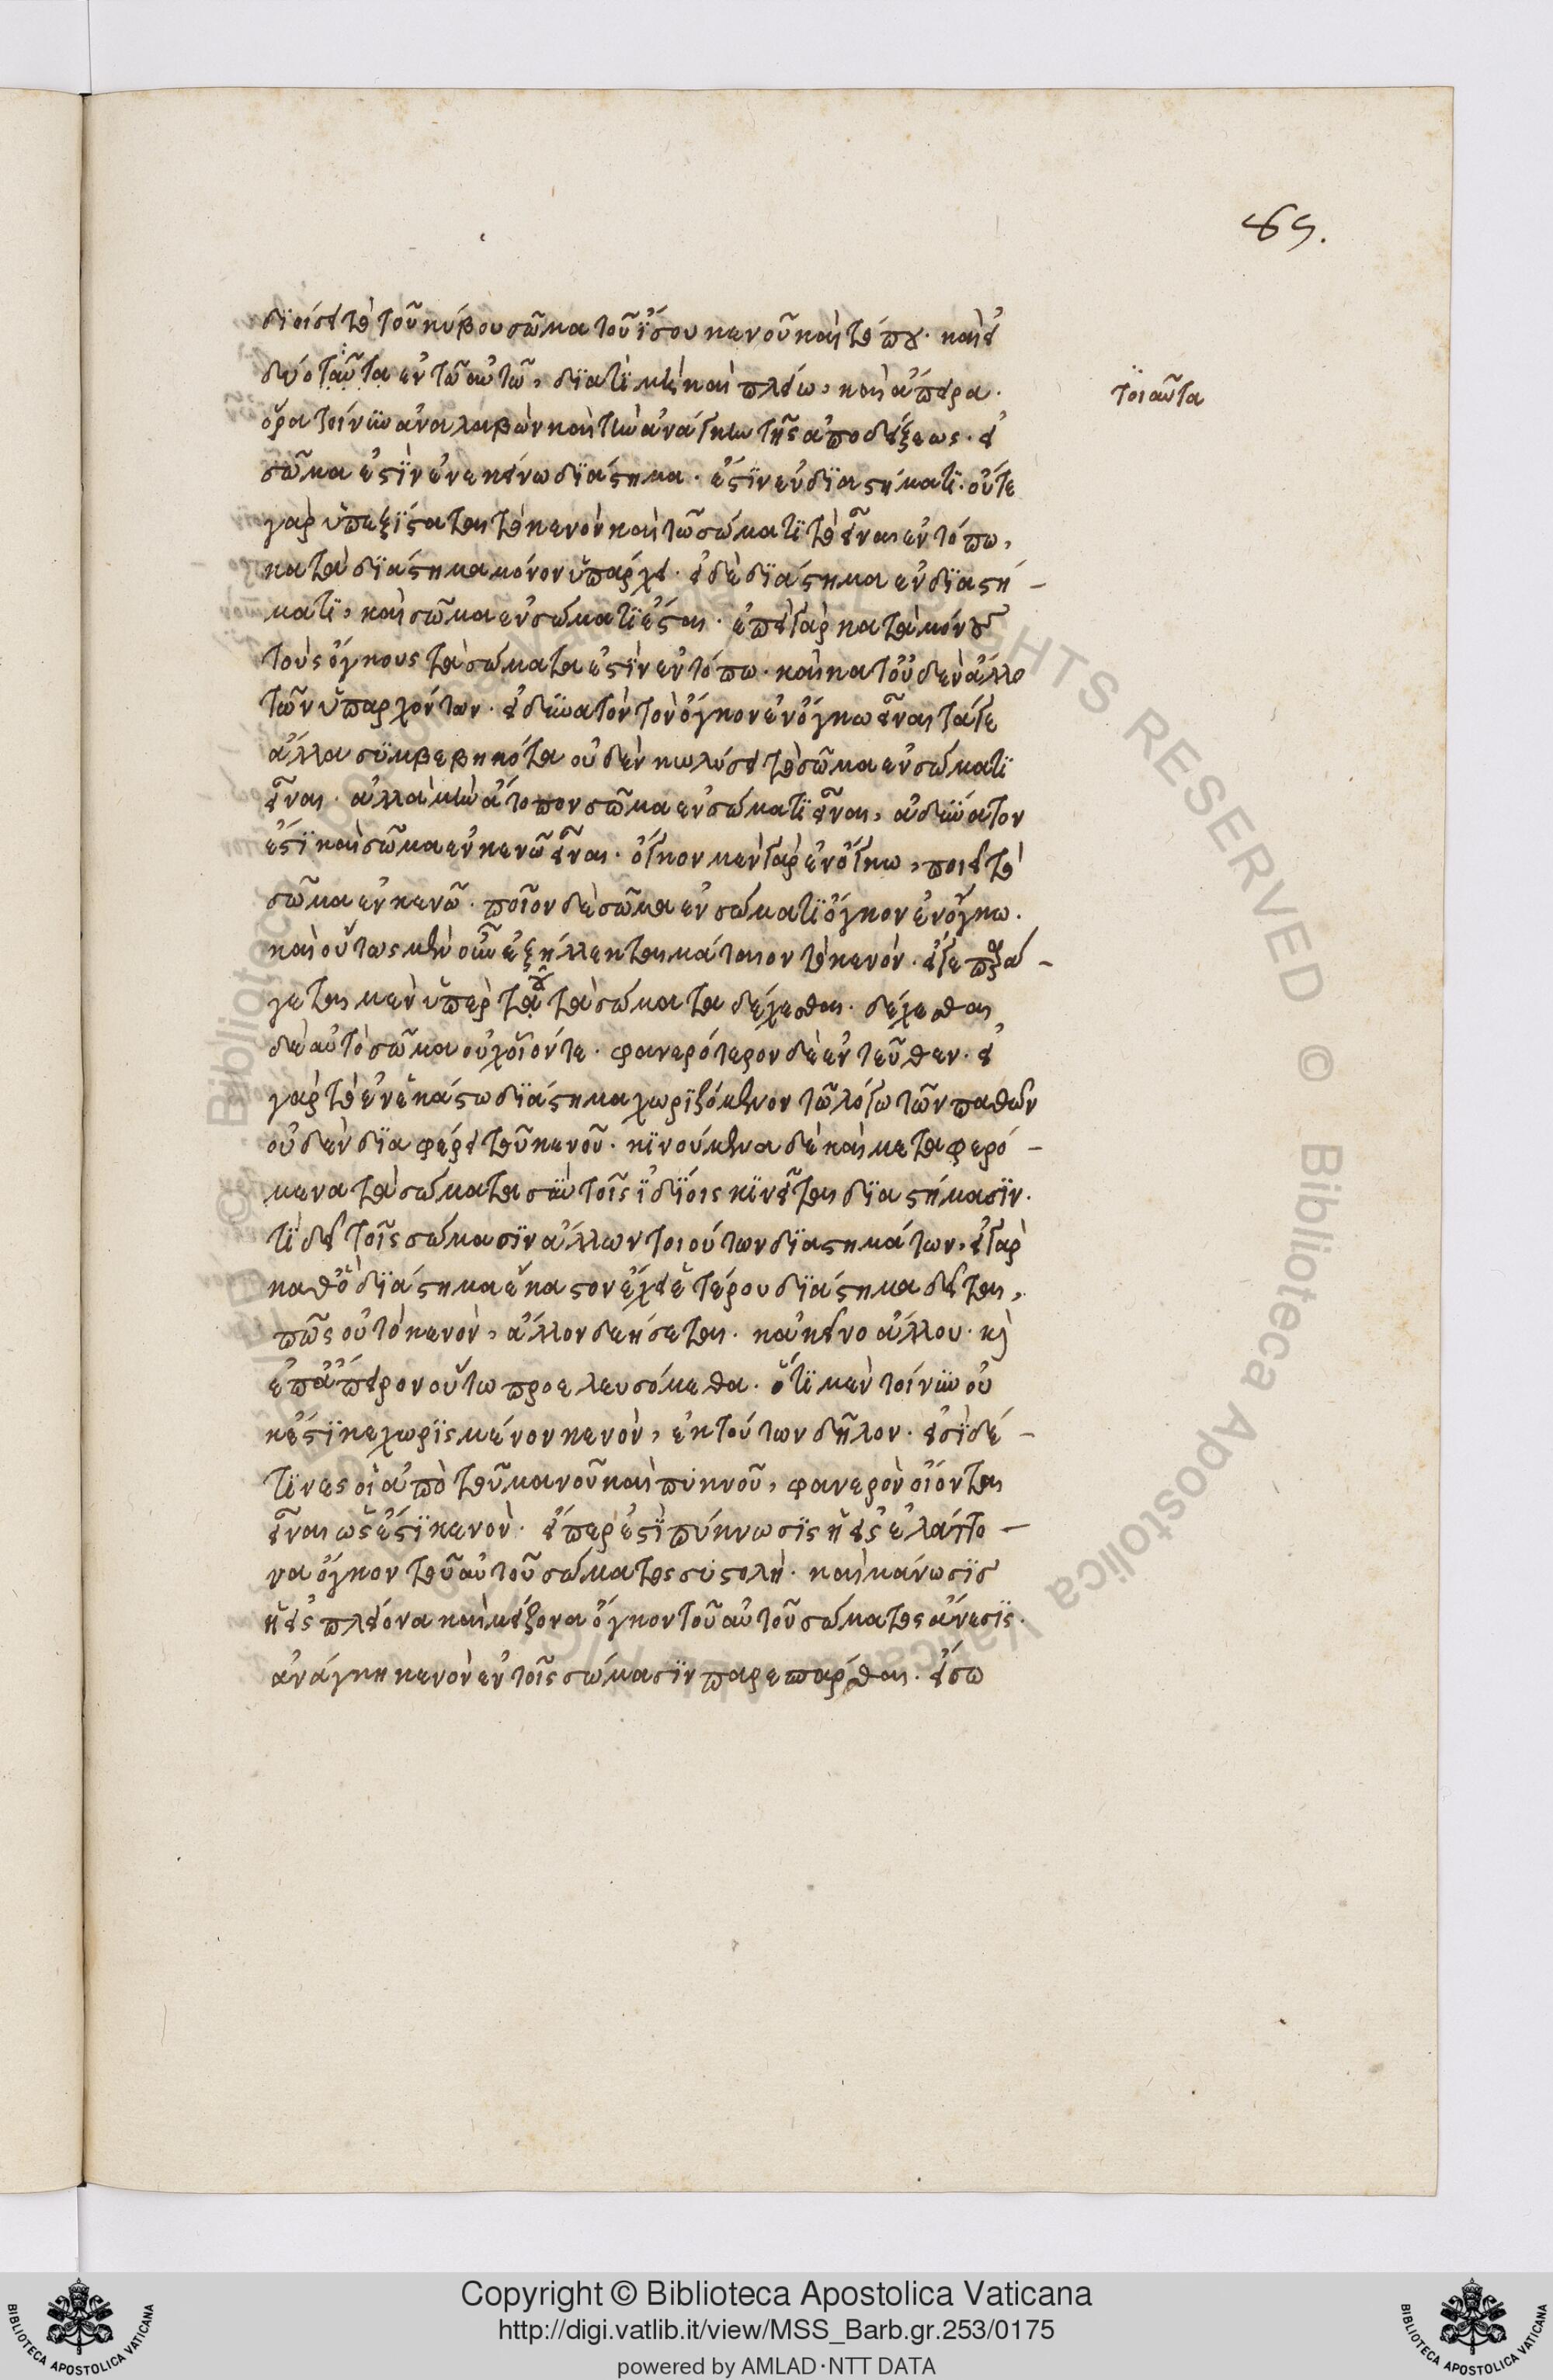 85.
διοίσει τὸ τοῦ κύβου σῶμα τοῦ ἴσου κενοῦ καὶ τόπου. καὶ εἰ
δύο ταῦτα ἐν τῶ αὐτῶ, διατί μὴ καὶ πλείω, καὶ ἄπειρα.
τοιαῦτα
ὅρα τοίνυν ἀναλαβὼν καὶ τὴν ἀνάγκην τῆς ἀποδείξεως. εἰ
σῶμα ἐστὶν ἐν ἐκείνω διάστημα. ἔστιν ἐν διαστήματι. οὔτε
γὰρ ὑπεξίσταται τὸ κενὸν καὶ τῶ σώματι τὸ εἶναι ἐν τόπω,
κατὰ διάστημα μόνον ὑπάρχει. εἰ δὲ διάστημα ἐν διαστή-
ματι, καὶ σῶμα ἐν σώματι ἔσται. ἐπεὶ γὰρ κατὰ μόνους
τοὺς ὄγκους τὰ σώματα ἐστὶν ἐν τόπω. καὶ κατ' οὐδὲν ἄλλο
τῶν ὑπαρχόντων. εἰ δυνατὸν τὸν ὄγκον ἐν ὄγκω εἶναι τάγε
ἄλλα συμβεβηκότα οὐδὲν κωλύσει τὸ σῶμα ἐν σώματι
εἶναι. ἀλλὰ μὴν ἄτοπον σῶμα ἐν σώματι εἶναι, ἀδύνατον
ἐστὶ καὶ σῶμα ἐν κενῶ εἶναι. ὄγκον μὲν γὰρ ἐν ὄγκω, ποιεῖ τὸ
σῶμα ἐν κενῶ. ποῖον δὲ σῶμα ἐν σώματι ὄγκον ἐν ὄγκω.
καὶ οὕτως μὲν οὖν ἐξηλλεκται μάταιον τὸ κενόν. εἴγε παρά-
γεται μὲν ὑπὲρ τοῦ τὰ σώματα δέχεσθαι. δέχεσθαι
δὲ αὐτὸ σῶμα οὐχ οἷόντε. φανερότερον δὲ ἐντεῦθεν. εἰ
γὰρ τὸ ἐν ἑκάστω διάστημα χωριζόμενον τῶ λόγω τῶν παθῶν
οὐδὲν διαφέρει τοῦ κενοῦ. κινούμενα δὲ καὶ μεταφερό-
μενα τὰ σώματα σὺν τοῖς ἰδίοις κινεῖται διαστήμασιν.
τί δεῖ τοῖς σώμασιν ἄλλων τοιούτων διαστημάτων, εἰ γὰρ
καθὸ διάστημα ἕκαστον ἔχει ἑτέρου διάστημα δεῖται,
πῶς οὐ τὸ κενὸν, ἄλλου δεήσεται. κἀκεῖνο ἄλλου. κ̀
ἐπ' ἄπειρον οὕτω προελευσόμεθα. ὅτι μὲν τοίνυν οὐ
κ ἔστι κεχωρισμένον κενὸν, ἐκ τούτων δῆλον. εἰσὶ δέ
τινες οἳ ἀπὸ τοῦ μανοῦ καὶ πυκνοῦ, φανερὸν οἴονται
εἶναι ὡς ἔστι κενὸν. εἴπερ ἐστὶ πύκνωσις ἡ εἰς ἐλάττο-
να ὄγκον τοῦ αὐτοῦ σώματος συστολὴ. καὶ μάνωσις
ἡ εἰς πλείονα καὶ μείζονα ὄγκον τοῦ αὐτοῦ σώματος ἄνεσις.
ἀνάγκη κενὸν ἐν τοῖς σώμασιν παρεσπάρθαι. εἴσω
Copyright © Biblioteca Apostolica Vaticana
http://digi.vatlib.it/view/MSS_Barb.gr.253/0175
powered by AMLAD·NTT DATA